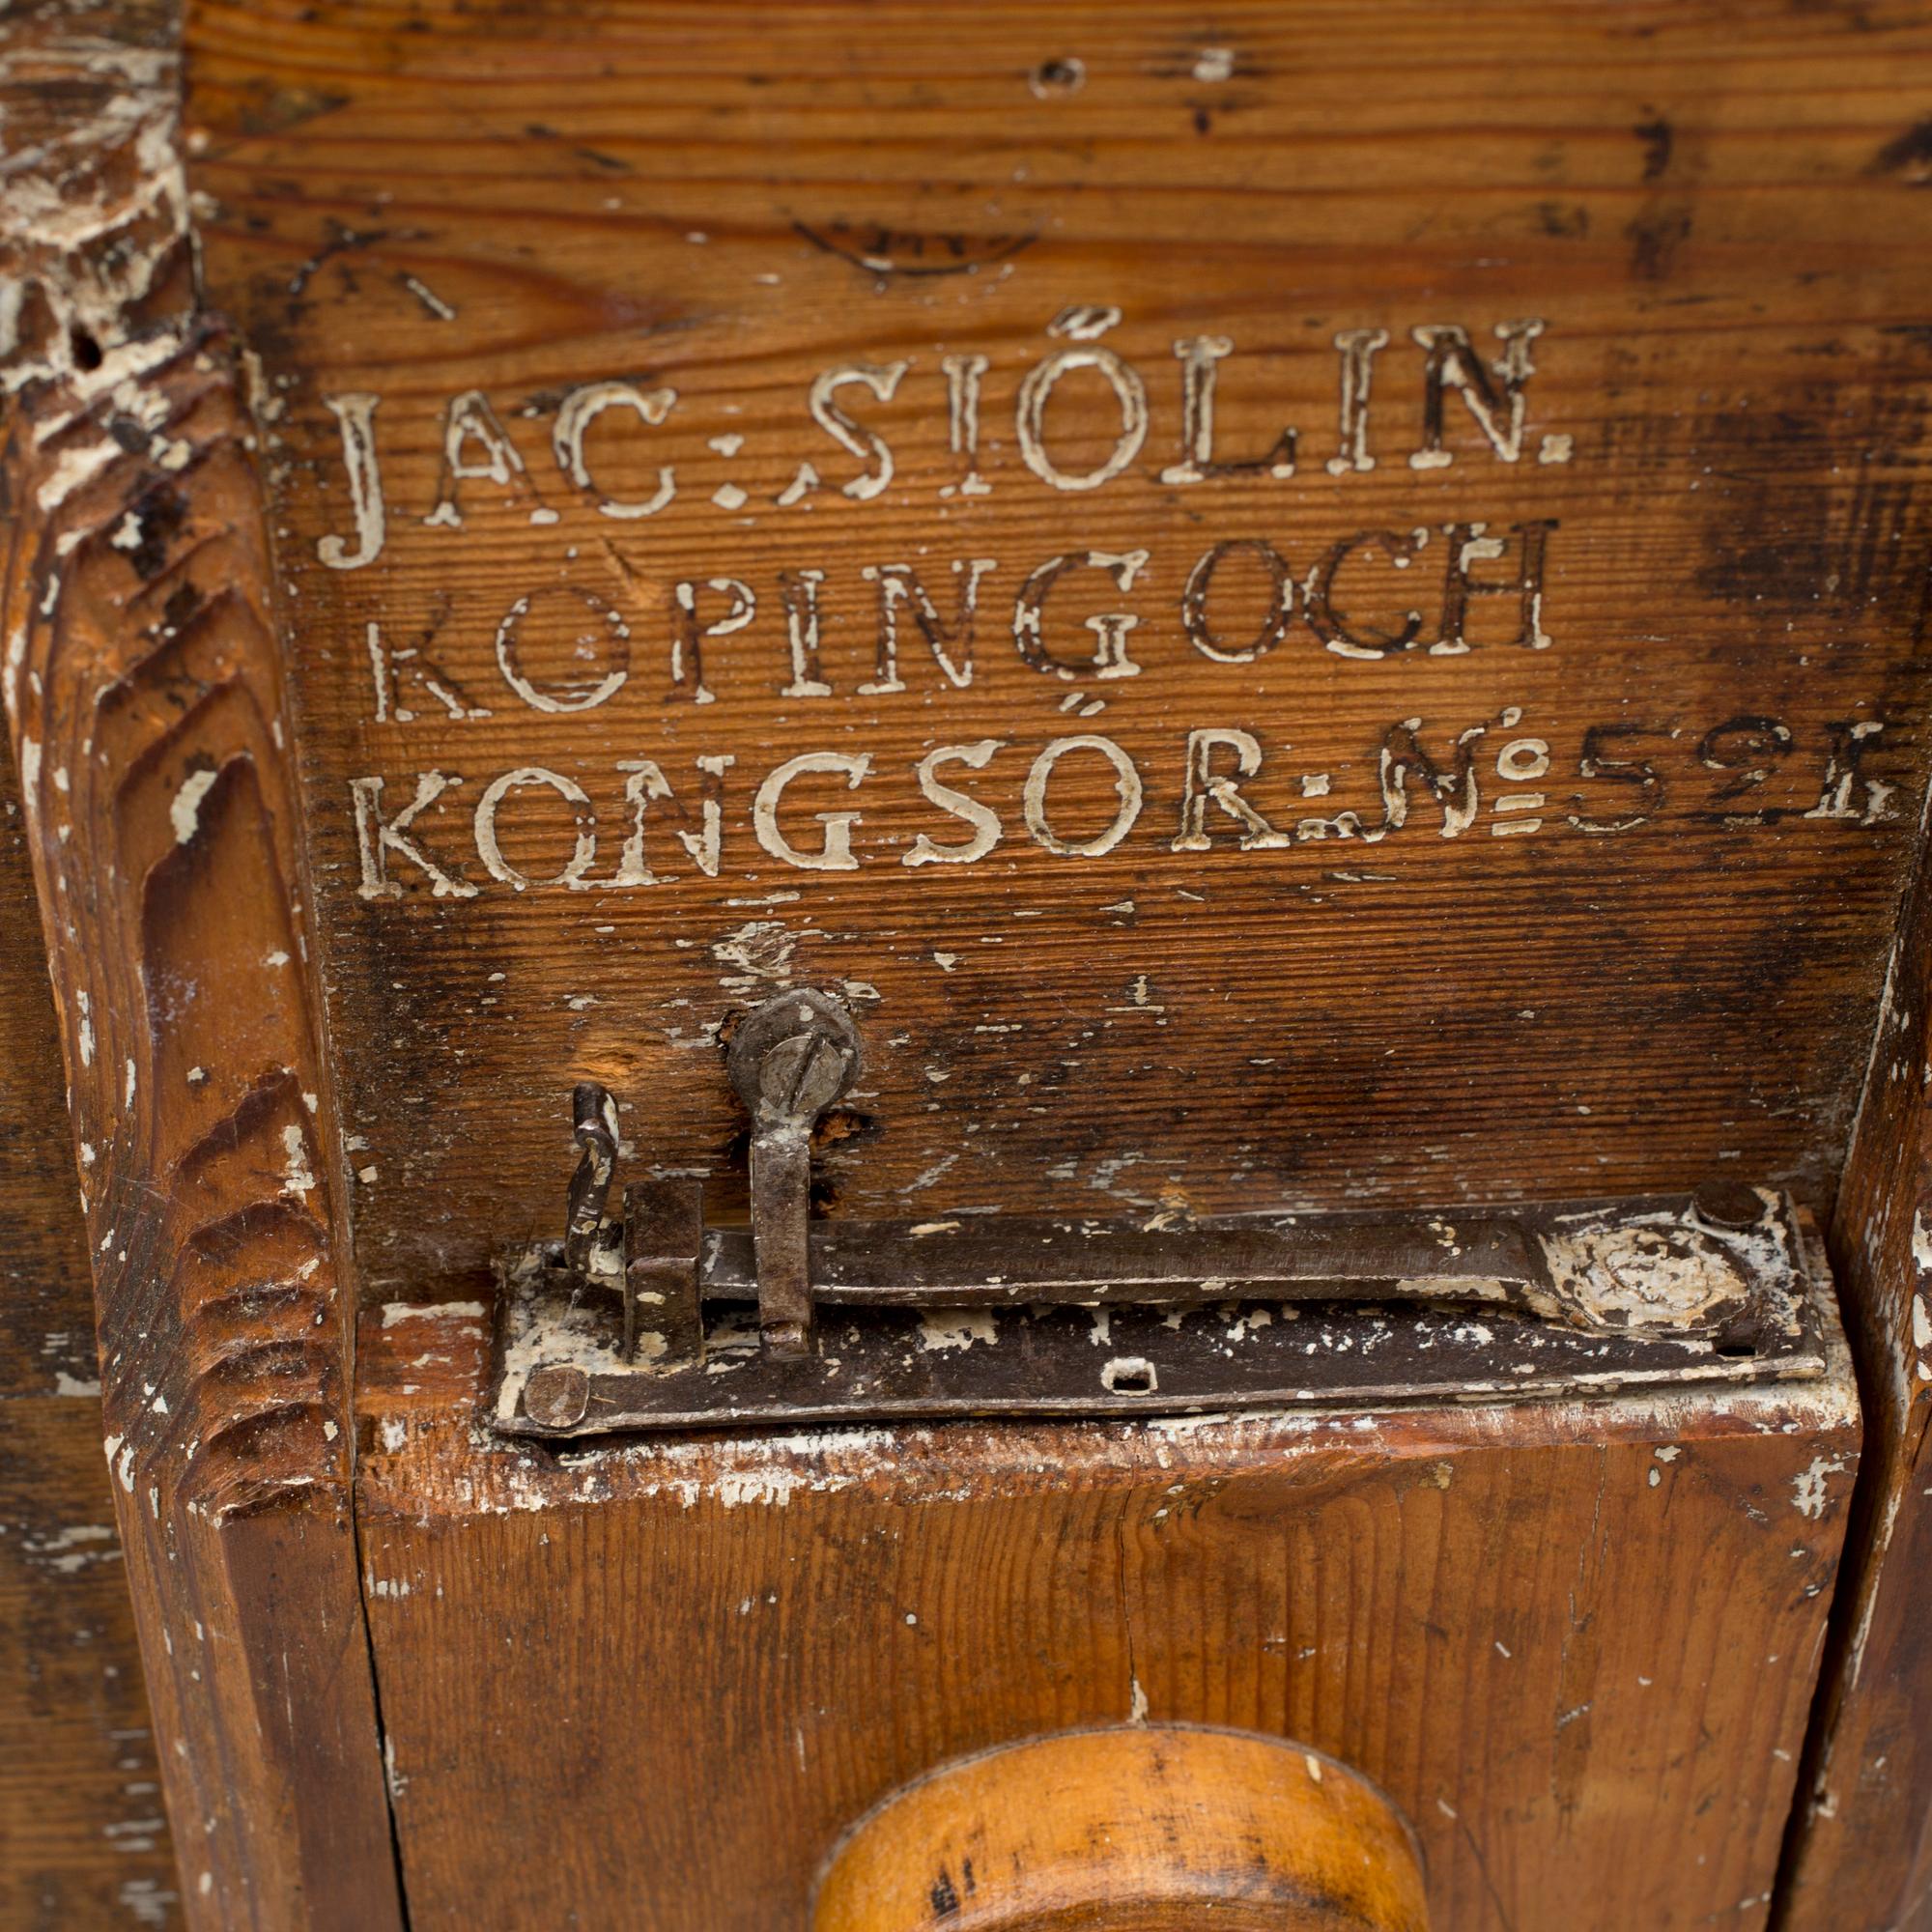 JAC: SIÖLIN.
KOPING OCH
KONGSÖR: No 52